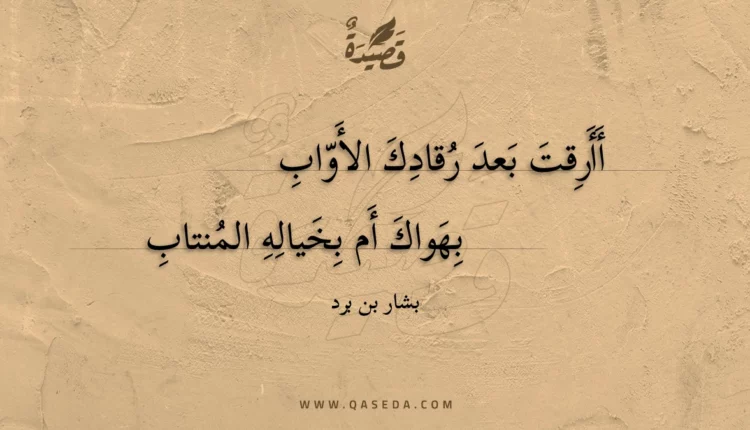 قَصِيْدَةٌ
أَأَرِقتَ بَعدَ رُقادِكَ الأَوّابِ
بِهَواكَ أَم بِخَيالِهِ المُنتابِ
بشار بن برد
WWW.QASEDA.COM